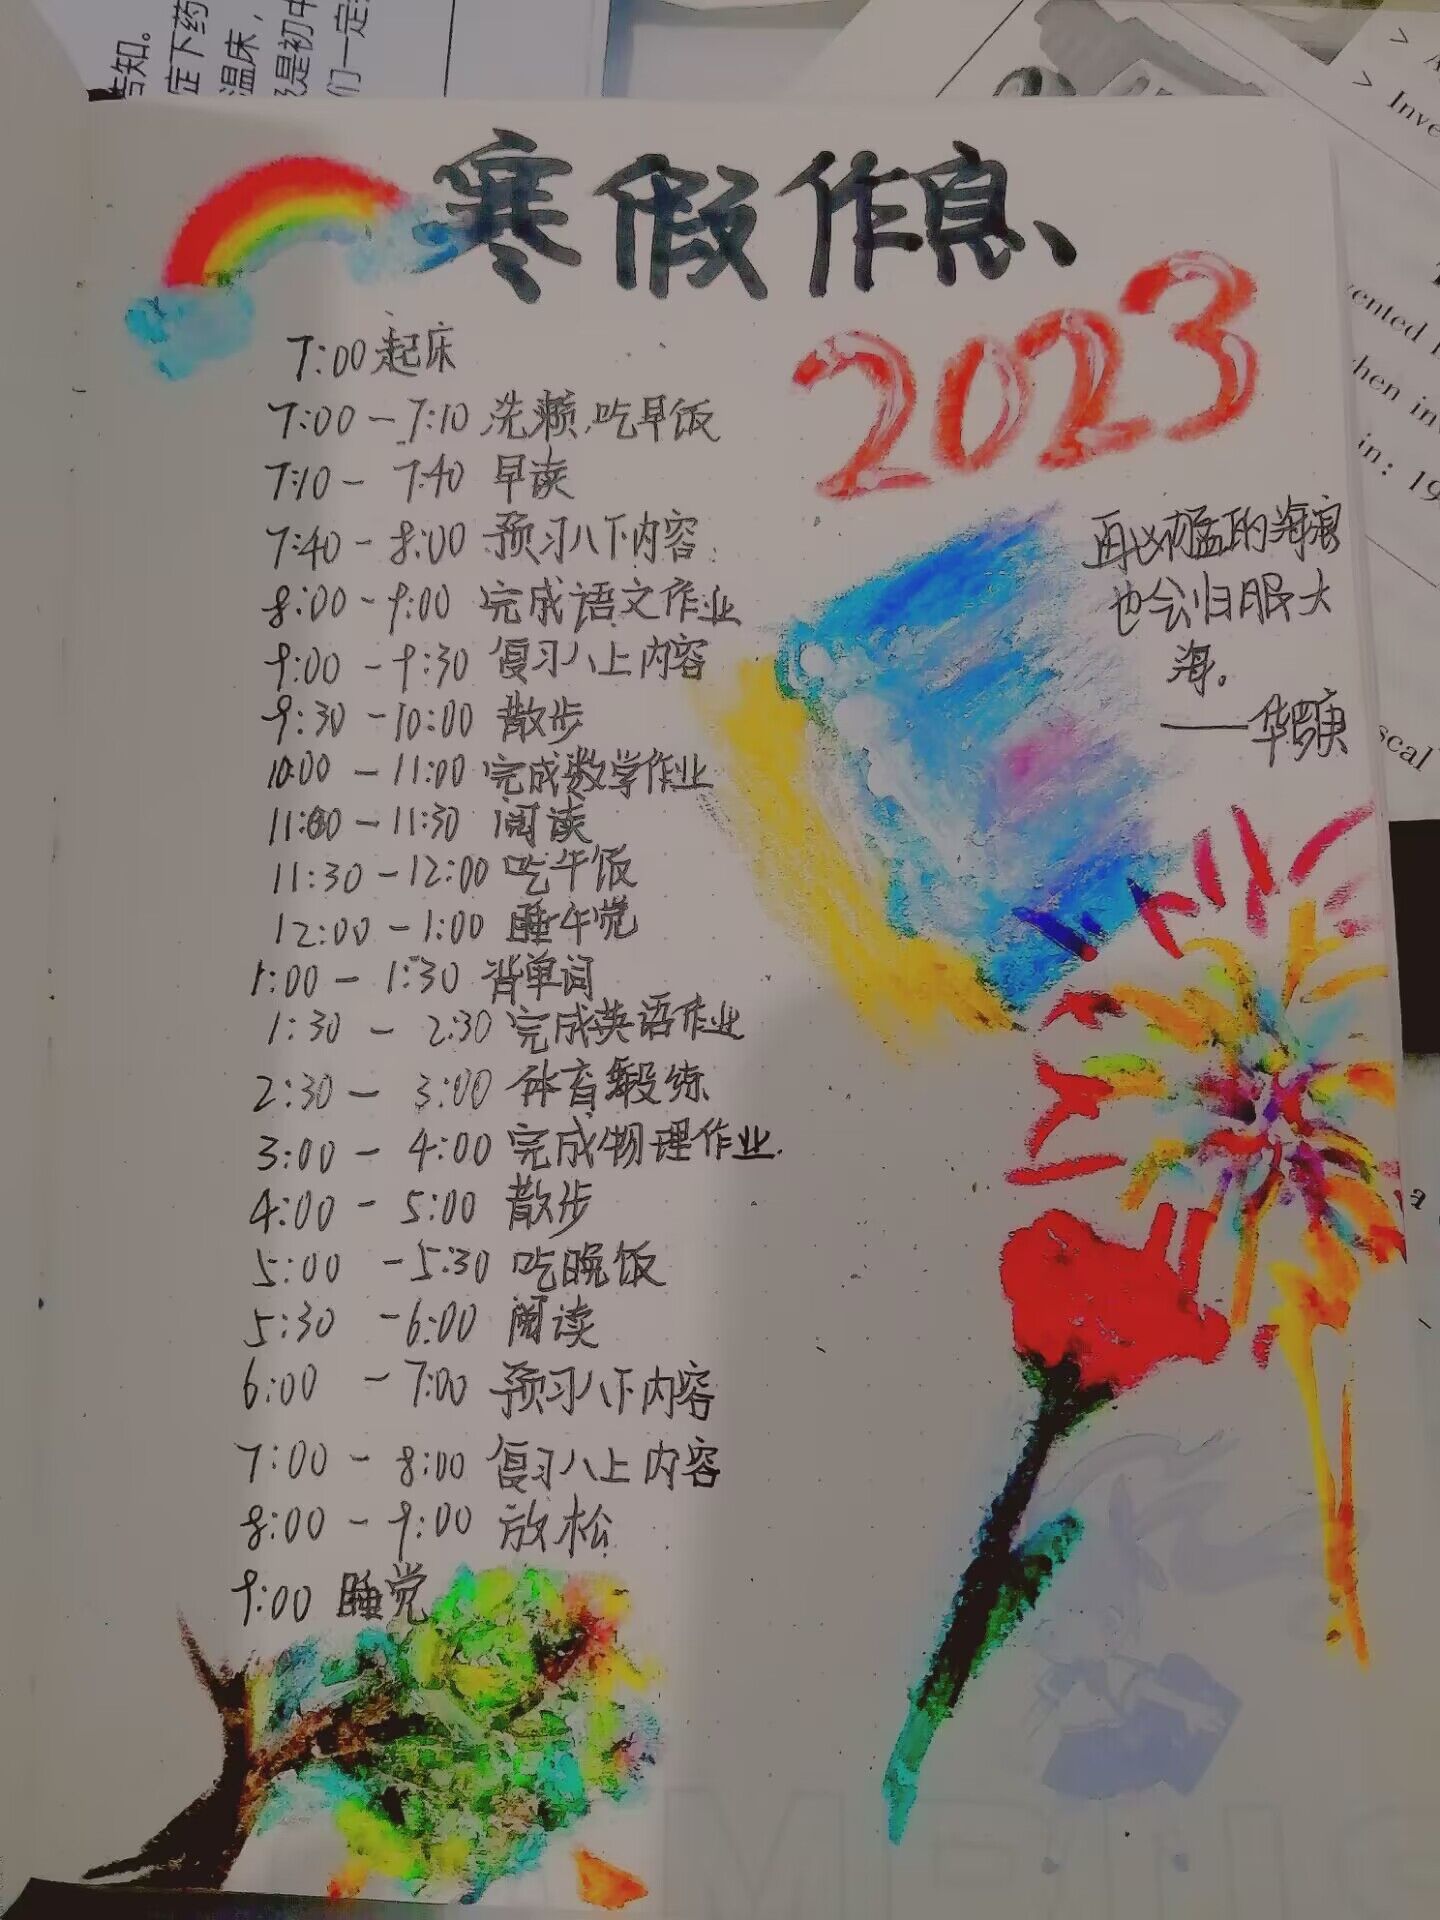 告知。
症下药
温床，
是初中
们一定
Inve
ented
hen in
in: 19
scal
寒假作息、
2023
7:00 起床
7:00 - 7:10 洗簌,吃早饭
7:10 - 7:40 早读
7:40 - 8:00 预习八下内容
8:00 - 9:00 完成语文作业
9:00 - 9:30 复习八上内容
9:30 - 10:00 散步
10:00 - 11:00 完成数学作业
11:00 - 11:30 阅读
11:30 - 12:00 吃午饭
12:00 - 1:00 睡午觉
1:00 - 1:30 背单词
1:30 - 2:30 完成英语作业
2:30 - 3:00 体育锻练
3:00 - 4:00 完成物理作业.
4:00 - 5:00 散步
5:00 - 5:30 吃晚饭
5:30 - 6:00 阅读
6:00 - 7:00 预习八下内容
7:00 - 8:00 复习八上内容
8:00 - 9:00 放松
9:00 睡觉
再凶猛的海浪
也会归服大
海。
——华罗庚